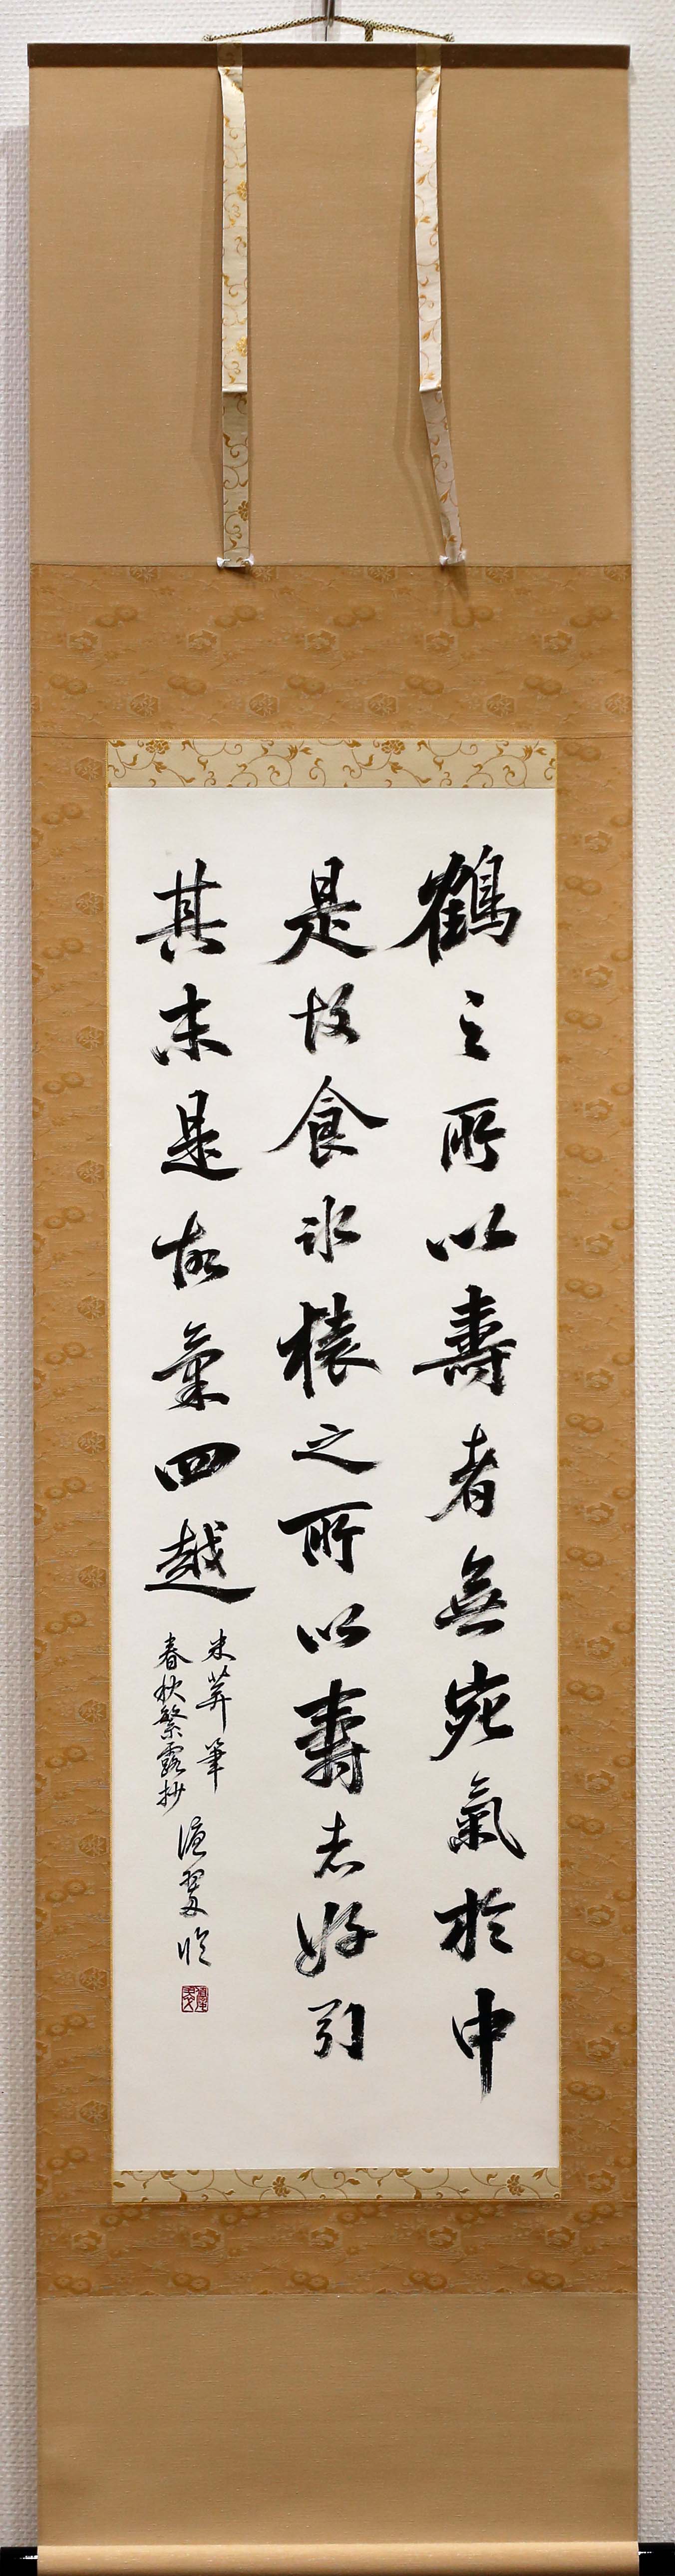 鶴之所以壽者無宛氣於中
是故食氷猿之所以壽者好引
其末是故氣四越
米芾筆
春秋繁露抄
臨